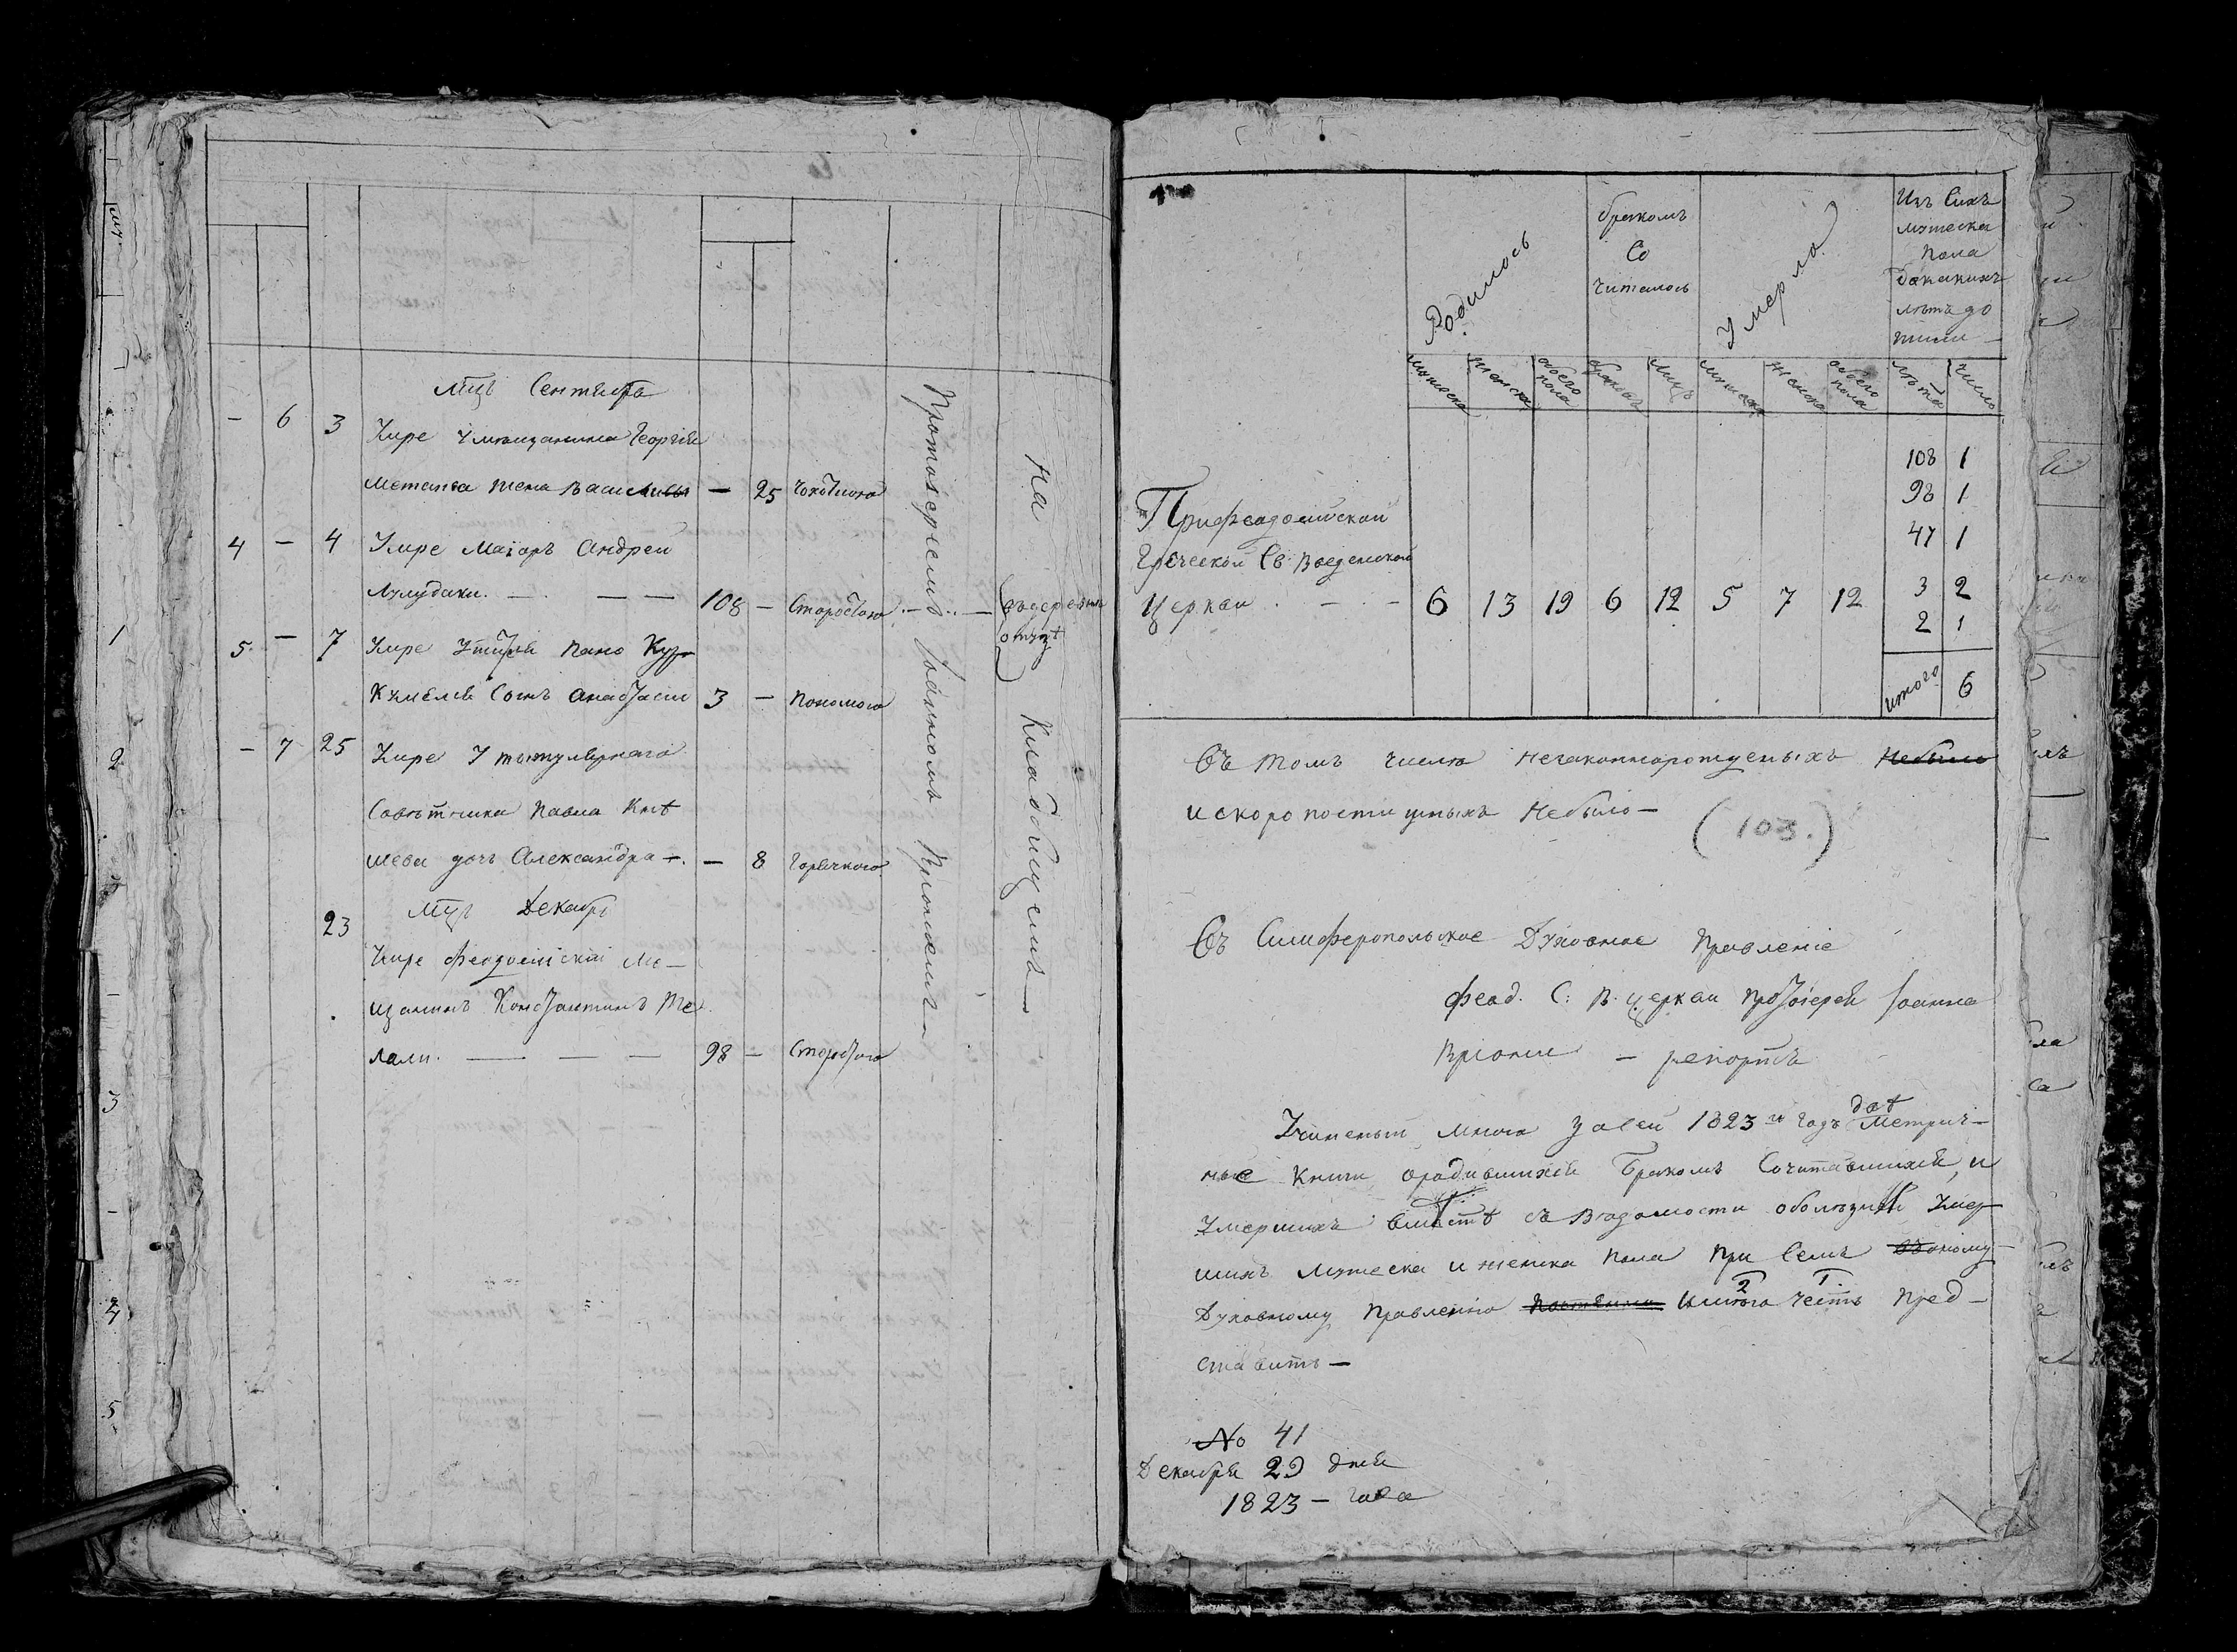 Мцъ Сентября
- 6 3 Умре Умещанина Георгія
Метакса жена Василиса — 25 чохоткою
4 - 4 Умре Маіоръ Андрей
Лулудаки. — — — 108 — Старостью
5 - 7 Умре
сынъ Анастасій 3 — Поносомъ
- 7 25 Умре У титулярнаго
Совѣтника Павла
дочь Александра — — 8 Горячкою
Мцъ Декабръ
23
Умре Феодосійскій Ме-
щанинъ Константинъ
лали. — — — 98 — Старостью
Протоіереемъ Іоанномъ
На Кладбищемъ
Родилось
бракомъ
Со
читалось
Умерло
Изъ Сихъ
мужеска
Пола
до какихъ
лѣтъ до
жили —
мужеска
женска
обоего
пола
браковъ
лицъ
мужеска
женска
обоего
пола
лѣта
число
108 1
98 1
47 1
3 2
2 1
итого 6
При Феодосійской
Греческой Св. Введенской
Церкви . — - 6 13 19 6 12 5 7 12
Въ томъ числѣ незаконнорожденыхъ Небыло
и скоропостижныхъ Небыло —
(103.)
Въ Симферопольское Духовное Правленіе
Феод. С: В. Церкви Протоіерея Іоанна
— репортъ
Учиненыи мною за сей 1823 й годъ Метрич-
ные Книги ородившихся Бракомъ Сочитавшихся, и
Умершихъ вместѣ съ Вѣдомости оболѣзни Умер
шихъ мужеска и женска Пола При Семъ оному
2 1.
Духовному Правленію имѣю честь Пред-
ставить —
No 41
Декабря 29 дня
1823 — года